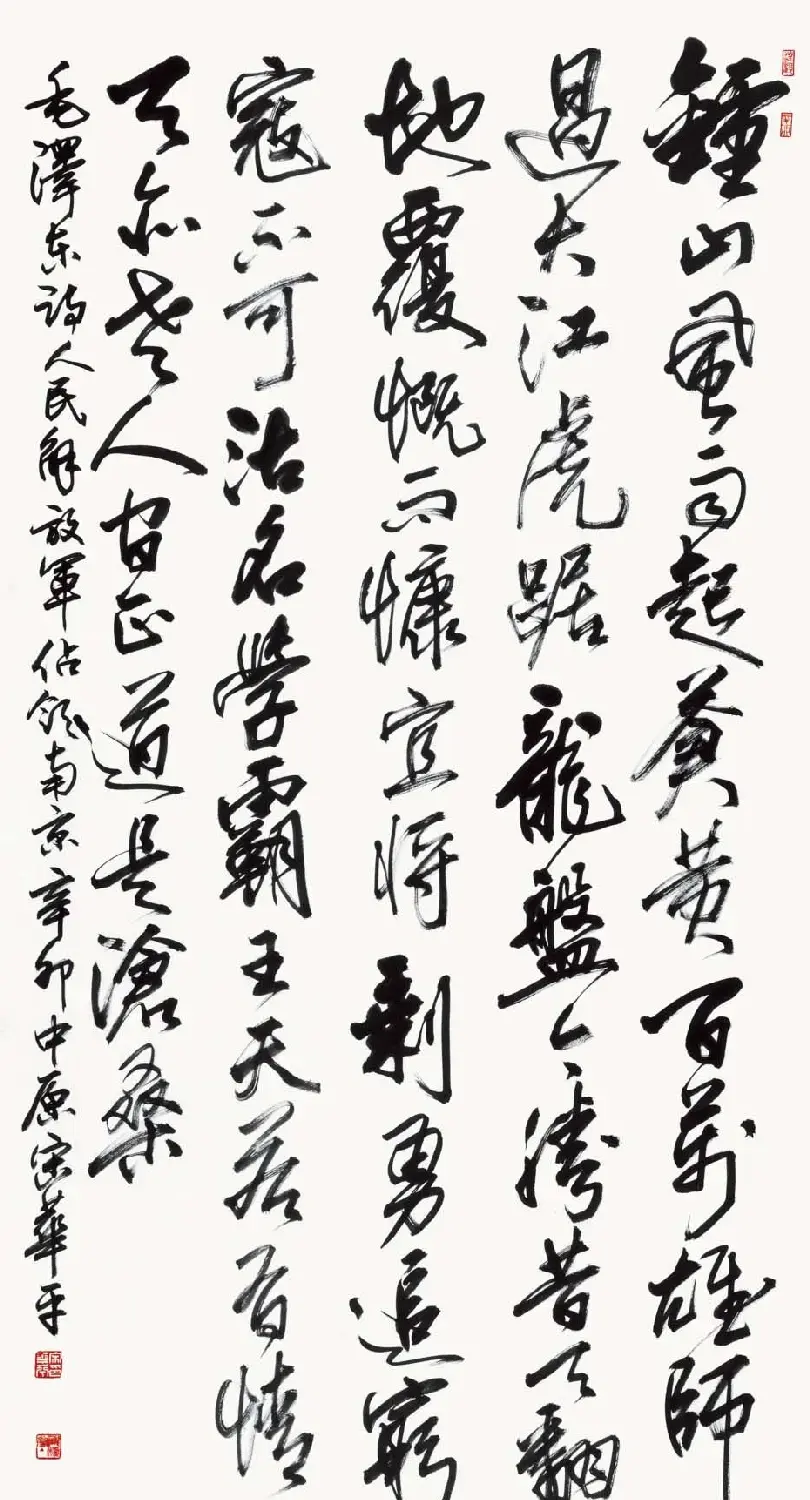 鍾山風雨起蒼黄百萬雄師
過大江虎踞龍盤今勝昔天翻
地覆慨而慷宜將剩勇追窮
寇不可沽名學霸王天若有情
天亦老人間正道是滄桑
毛澤東詩人民解放軍佔領南京辛卯中原宋華平